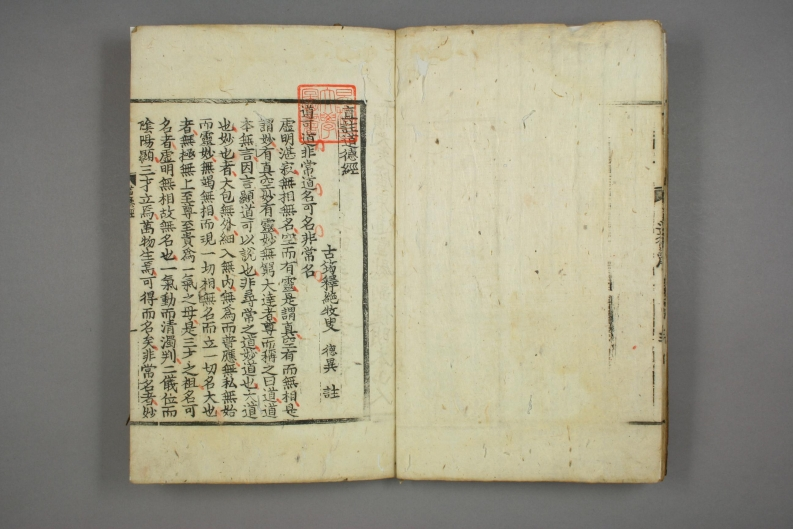 直註道德經
古筠釋絶牧叟 德異 註
道可道非常道名可名非常名
虛明湛寂無相無名空而有靈是謂真空有而無相是
謂妙有真空妙有靈妙無窮大達者尊而稱之曰道道
本無言因言顯道可以說也非尋常之道妙道也大道
也妙也者大包無外細入無內無為而普應無私無始
而靈妙無竭無相而現一切相無名而立一切名大也
者無極無上至尊至貴為一氣之母是三才之祖名可
名者虛明無相故無名也一氣動而清濁判二儀位而
陰陽顯三才立焉萬物生焉可得而名矣非常名者妙